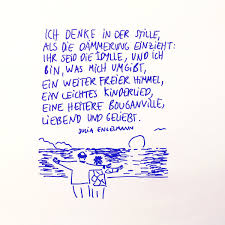 ICH DENKE IN DER STILLE,
ALS DIE DÄMMERUNG EINZIEHT:
IHR SEID DIE IDYLLE, UND ICH
BIN, WAS MICH UMGIBT,
EIN WEITER FREIER HIMMEL,
EIN LEICHTES KINDERLIED,
EINE HEITERE BOUGANVILLE,
LIEBEND UND GELIEBT.
JULIA ENGELMANN